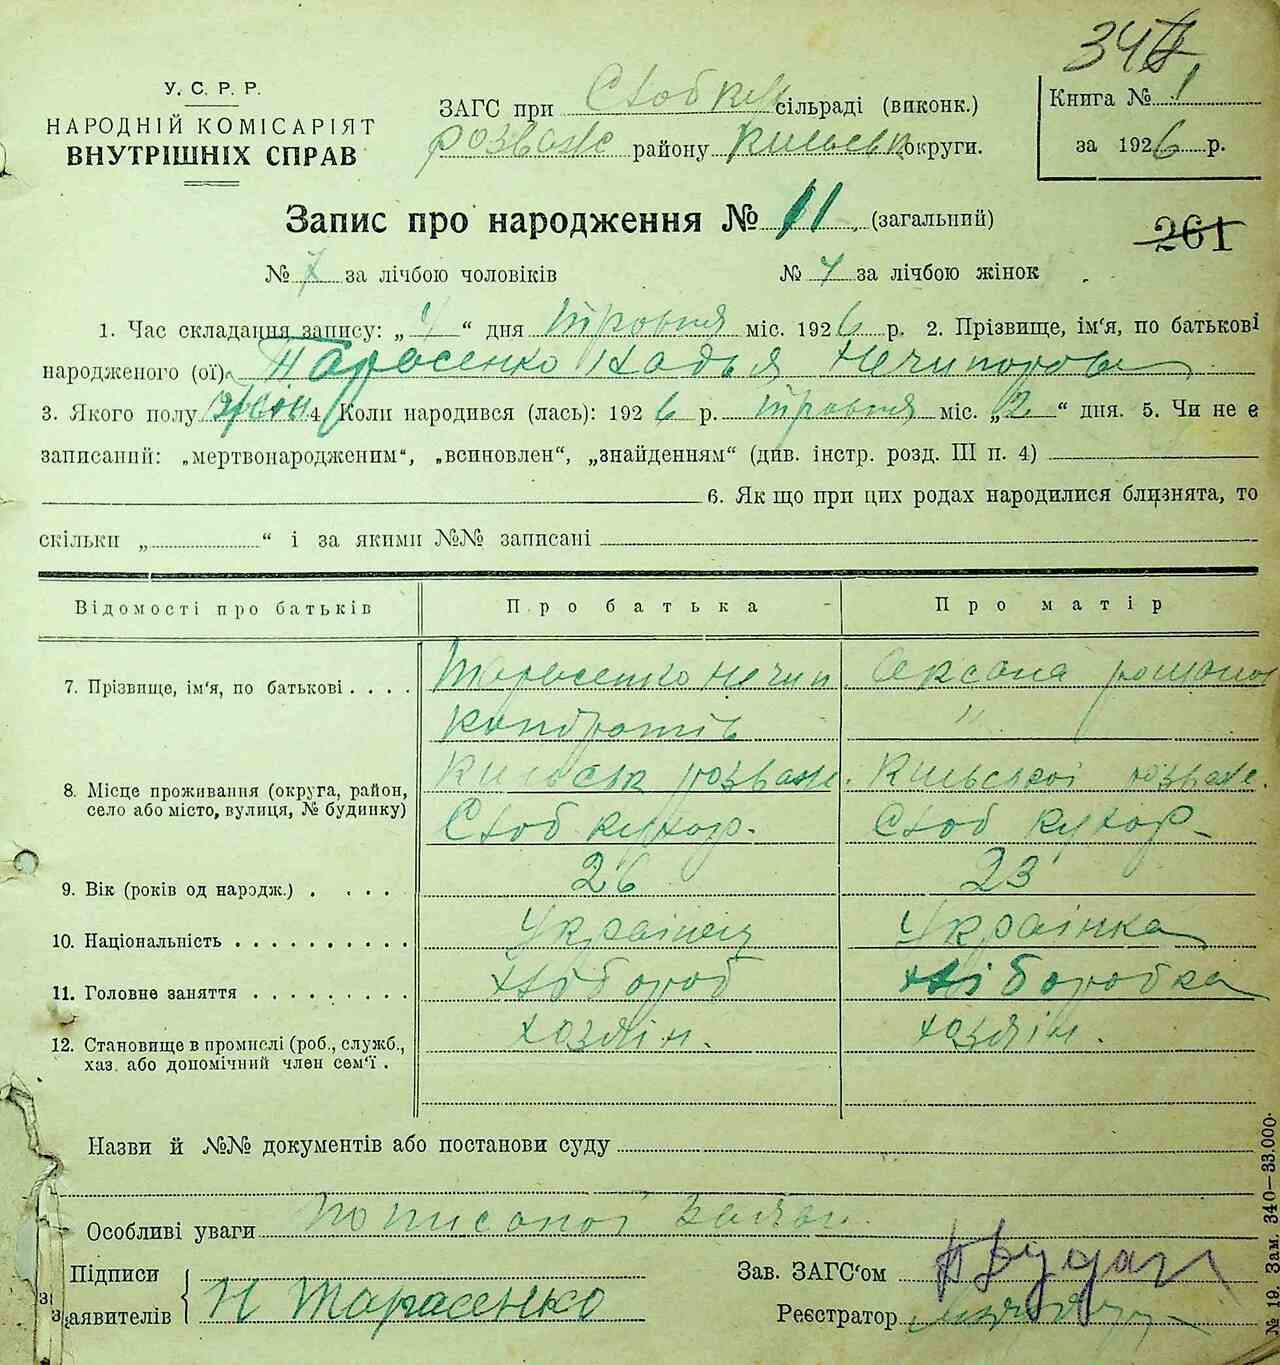 У. С. Р. Р.
НАРОДНІЙ КОМІСАРІЯТ
ВНУТРІШНІХ СПРАВ
ЗАГС при сільраді (виконк.)
розваж району Київськ округи.
Книга № 1
за 1926 р.
Запис про народження № 11 (загальний)
261
№ 7 за лічбою чоловіків № 4 за лічбою жінок
1. Час складання запису: „4“ дня травня міс. 1926 р. 2. Прізвище, ім‘я, по батькові
народженого (ої) Тарасенко Надья Нечипоровн
3. Якого полу жін 4 Коли народився (лась): 1926 р. травня міс. „2“ дня. 5. Чи не є
записаний: „мертвонародженим“, „всиновлен“, „знайденням“ (див. інстр. розд. III п. 4)
6. Як що при цих родах народилися близнята, то
скільки „ “ і за якими №№ записані
Відомості про батьків Про батька Про матір
7. Прізвище, ім‘я, по батькові . . . . Тарасенко Нечип Оксана
Кондратів "
8. Місце проживання (округа, район, село або місто, вулиця, № будинку) розваж. розваж.
Стоб хутор. Стоб хутор
9. Вік (років од народж.) . . . . 26 23
10. Національність . . . . . . . . . . Українец Українка
11. Головне заняття . . . . . . . . . хлібороб хліборобка
12. Становище в промислі (роб., служб., хаз. або допомічний член сем‘ї . хозяін. хозяін.
Назви й №№ документів або постанови суду
Особливі уваги
Підписи
заявителів Н Тарасенко
Зав. ЗАГС‘ом
Реєстратор
№ 19. Зам. 340—33.000.